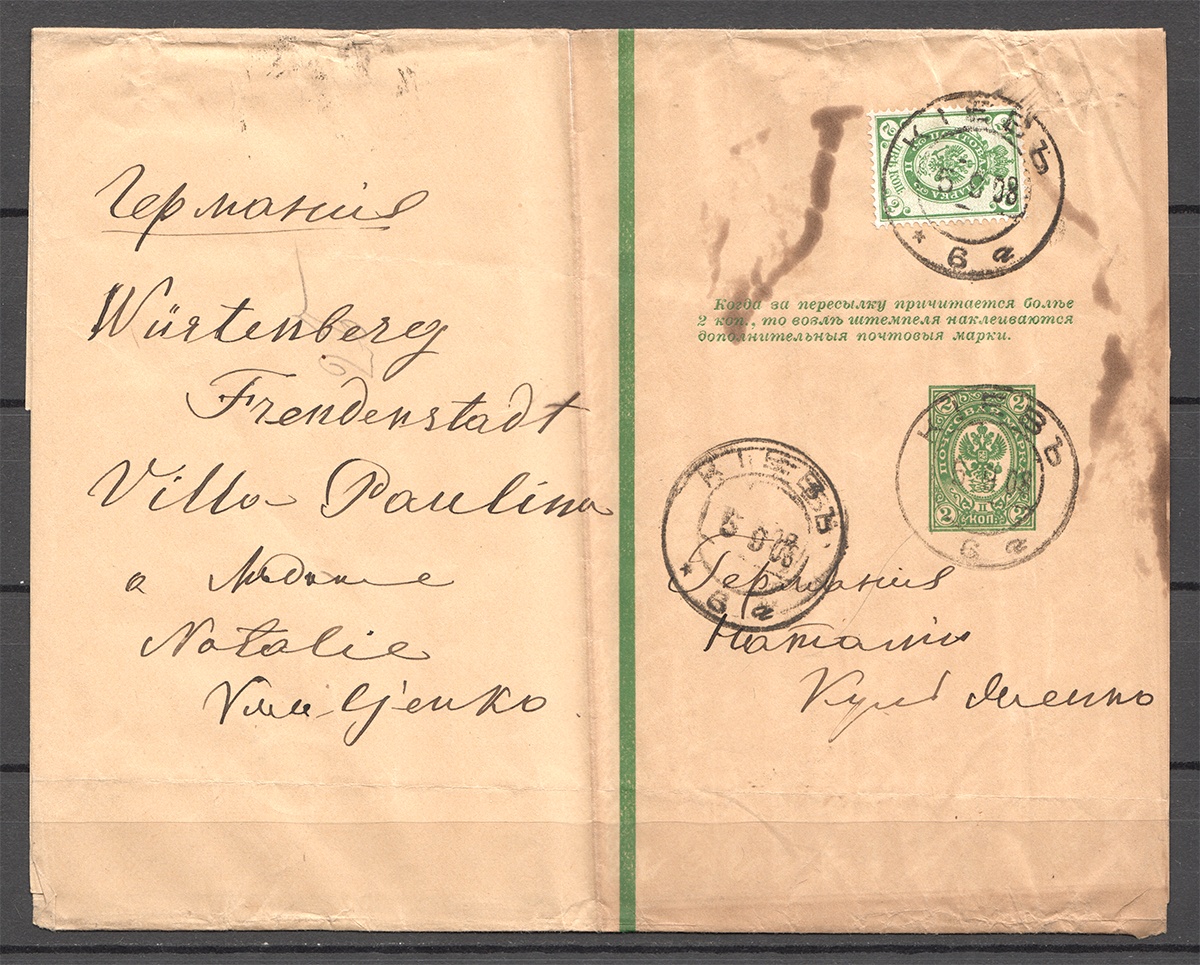 Германія
Würtenberg
Frendenstadt
Villa Paulina
a Madame
Natalie
КІЕВЪ
5 9 08
6 а
Когда за пересылку причитается болѣе
2 коп., то возлѣ штемпеля наклеиваются
дополнительныя почтовыя марки.
КІЕВЪ
6 а
2 2
ПОЧТОВАЯ МАРКА
II
2 КОП. 2
КІЕВЪ
5 9 08
6 а
Германія
Наталіи